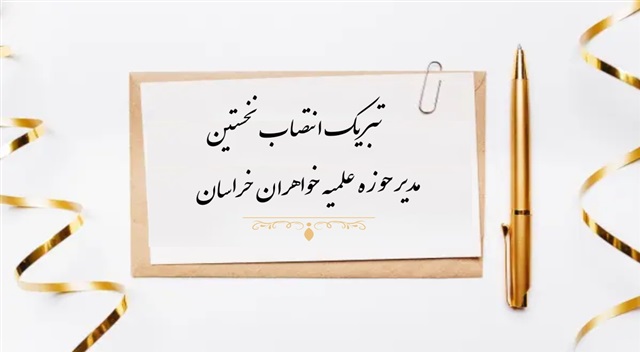 تبریک انتصاب نخستین
مدیر حوزه علمیه خواهران خراسان